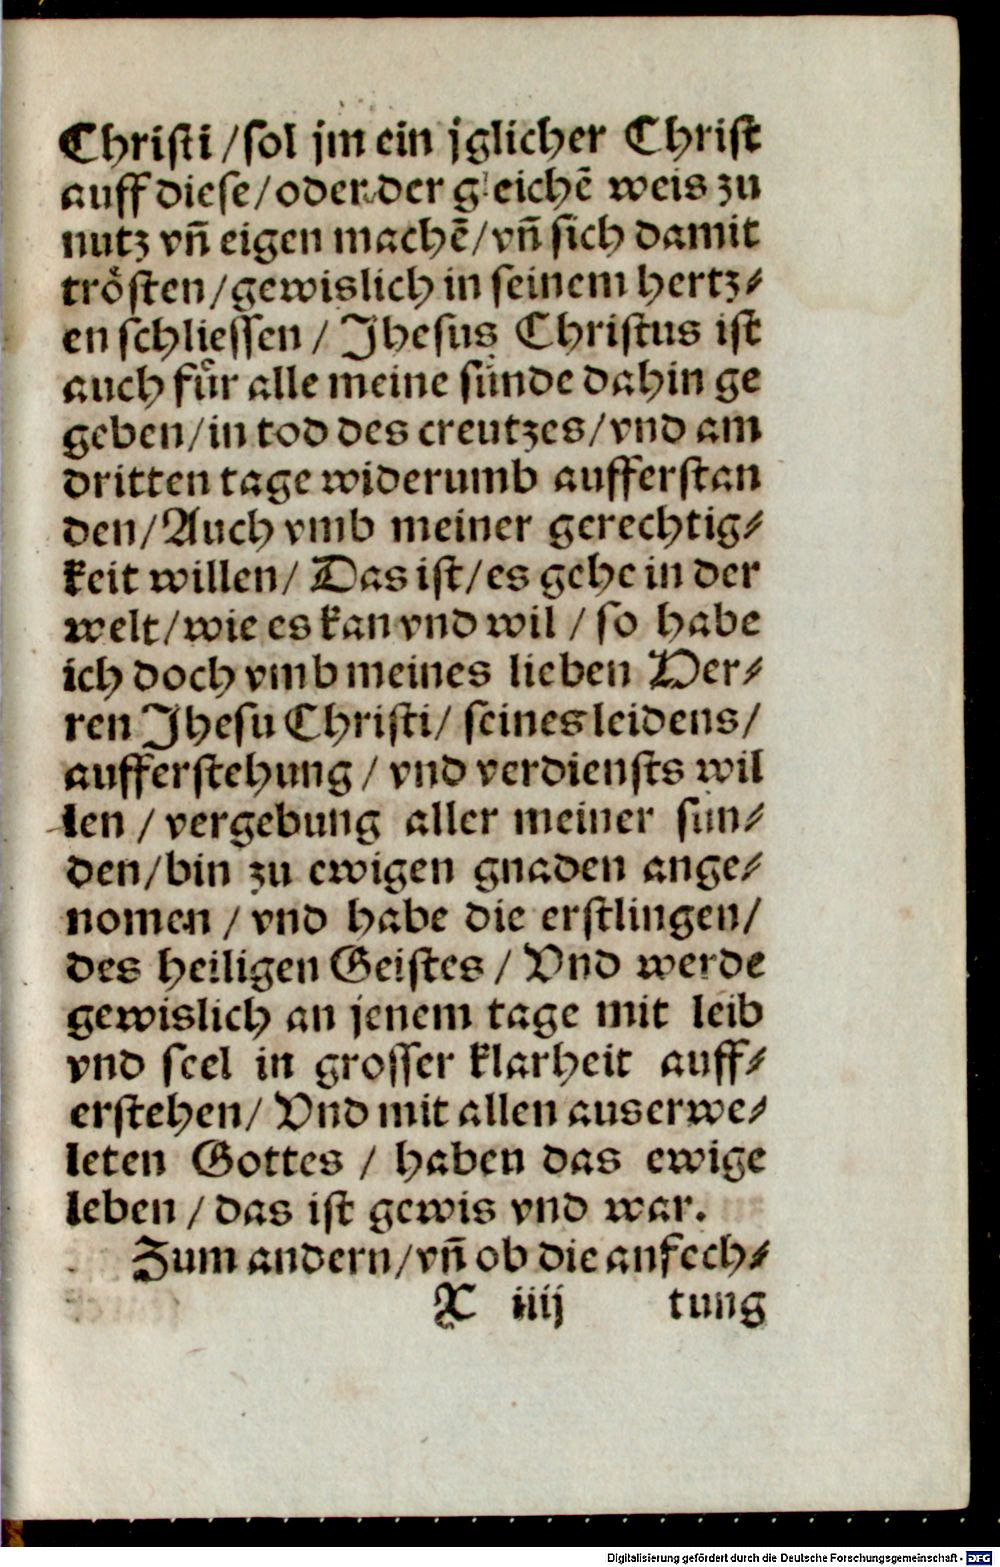 Christi / sol jm ein jglicher Christ
auff diese / oder der gleichē weis zu
nutz vñ eigen machē / vñ sich damit
trösten / gewislich in seinem hertz⸗
en schliessen / Jhesus Christus ist
auch für alle meine sünde dahin ge
geben / in tod des creutzes / vnd am
dritten tage widerumb aufferstan
den / Auch vmb meiner gerechtig⸗
keit willen / Das ist / es gehe in der
welt / wie es kan vnd wil / so habe
ich doch vmb meines lieben Her⸗
ren Jhesu Christi / seines leidens /
aufferstehung / vnd verdiensts wil
len / vergebung aller meiner sün⸗
den / bin zu ewigen gnaden ange⸗
nomen / vnd habe die erstlingen /
des heiligen Geistes / Vnd werde
gewislich an jenem tage mit leib
vnd seel in grosser klarheit auff⸗
erstehen / Vnd mit allen auserwe⸗
leten Gottes / haben das ewige
leben / das ist gewis vnd war.
Zum andern / vñ ob die anfech⸗
X iiij tung
Digitalisierung gefördert durch die Deutsche Forschungsgemeinschaft - DFG